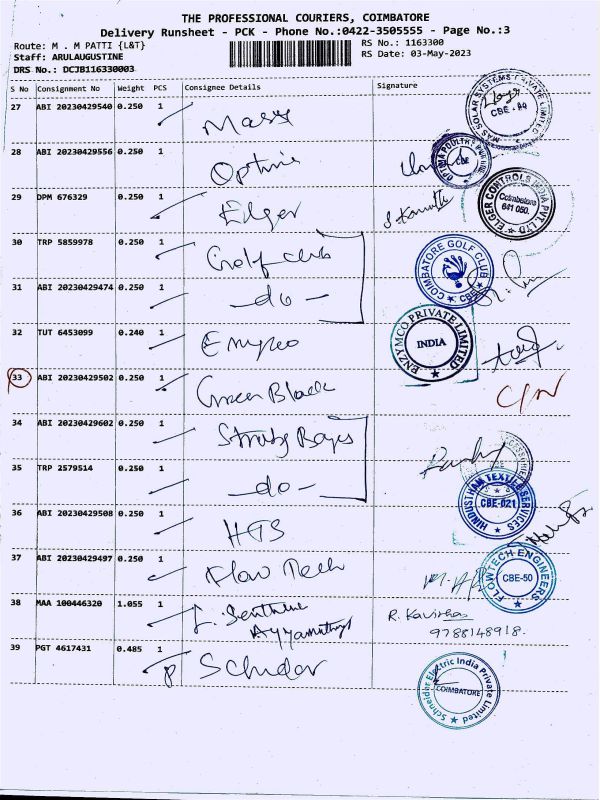 THE PROFESSIONAL COURIERS, COIMBATORE
Delivery Runsheet - PCK - Phone No.:0422-3505555 - Page No.:3
Route: M . M PATTI {L&T}
RS No.: 1163300
Staff: ARULAUGUSTINE
RS Date: 03-May-2023
DRS No.: DCJB116330003
S No Consignment No Weight PCS Consignee Details Signature
27 ABI 20230429540 0.250 1
MAS SOLAR SYSTEMS PRIVATE LIMITED
CBE
28 ABI 20230429556 0.250 1
CBE
29 DPM 676329 0.250 1 Elger
ELGER CONTROLS INDIA PVT. LTD
Coimbatore
641 050.
30 TRP 5859978 0.250 1 Golf club
COIMBATORE GOLF CLUB
CBE
31 ABI 20230429474 0.250 1 -do-
32 TUT 6453099 0.240 1
ENZYMCO PRIVATE LIMITED
INDIA
33 ABI 20230429502 0.250 1 Green Black
34 ABI 20230429602 0.250 1
35 TRP 2579514 0.250 1 -do-
HINDUSTHAM TEXTILE SERVICES
CBE-021
36 ABI 20230429508 0.250 1 HTS
37 ABI 20230429497 0.250 1 Flow Tech
FLOWTECH ENGINEERS
CBE-50
38 MAA 100446320 1.055 1
R.
9788148918.
39 PGT 4617431 0.485 1
Schneider Electric India Private Limited
COIMBATORE